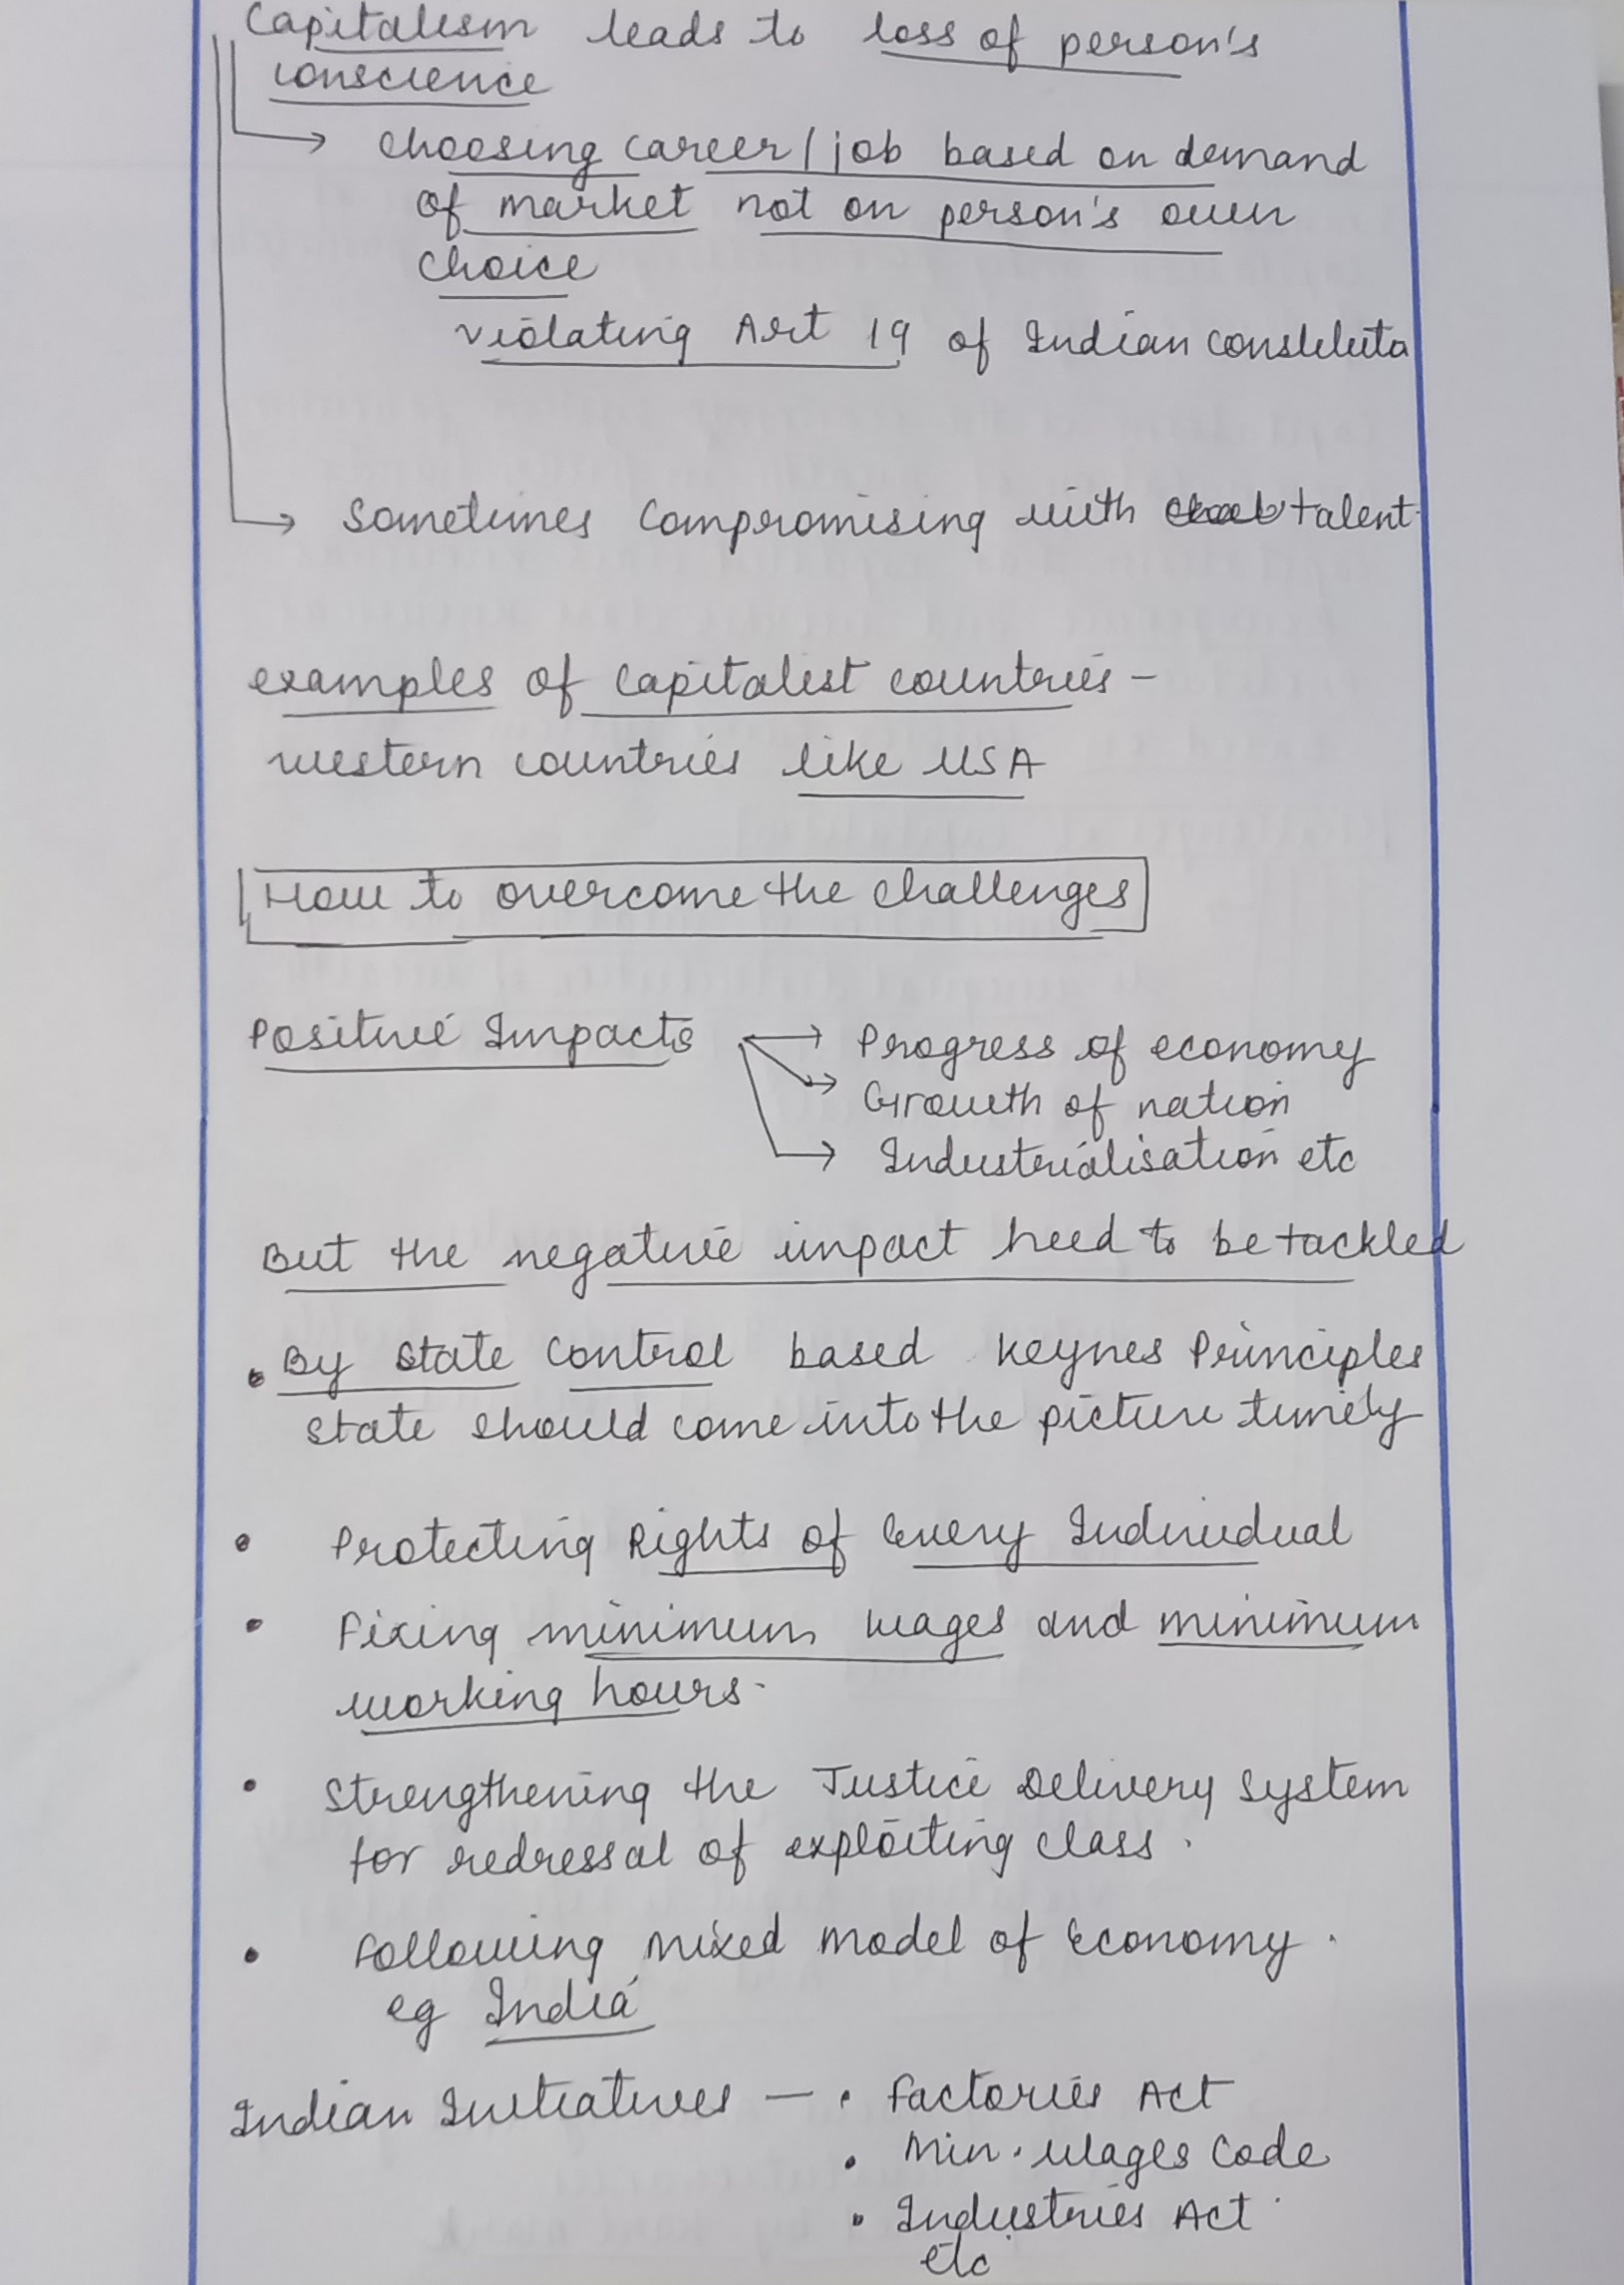 Capitalism leads to loss of person's
conscience
→ choosing career / job based on demand
of market not on person's own
choice
violating Art 19 of Indian
→ Sometimes compromising with talent
examples of capitalist countries -
western countries like USA
How to overcome the challenges
Positive Impacts → Progress of economy
→ Growth of nation
→ Industrialisation etc
But the negative impact need to be tackled
• By state control based Keynes Principles
state should come into the picture timely
• Protecting Rights of Every Individual
• Fixing minimum wages and minimum
working hours.
• Strengthening the Justice Delivery System
for redressal of exploiting class.
• Following mixed model of Economy.
eg India
Indian Initiatives - • Factories Act
• Min. Wages Code
• Industries Act
etc